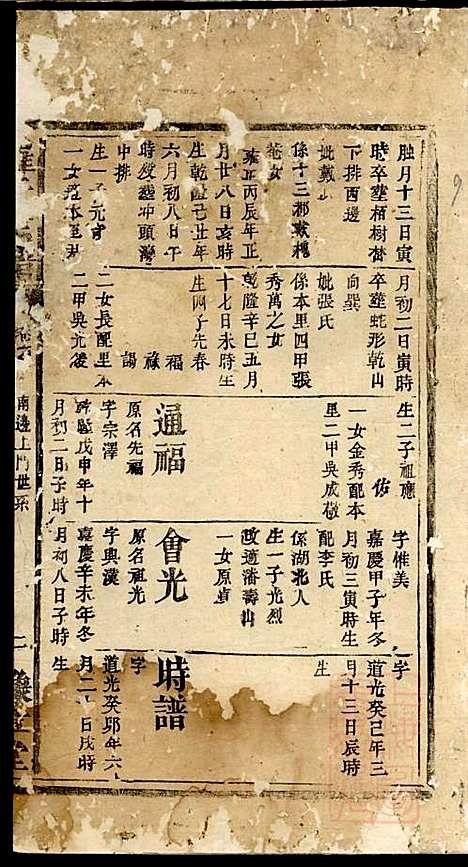 朏月十三日寅
時卒塟栢樹
下排西邊
妣戴
係十三都戴
雍正丙辰年正
月廿八日亥時
生乾隆
六月初八日午
時歿塟冲頭灣
中排
生一子元
一女
月初二日寅時
卒塟蛇形乾山
向巽
妣張氏
係本里四甲張
秀萬之女
乾隆辛巳五月
十七日未時生
生四子先春
福
祿
錫
二女長配里本
二甲吳光後
生二子祖應
佑
一女金秀配本
里二甲吳成
通福
原名先福
字宗澤
乾隆戊申年十
月初二日子時
字惟美
嘉慶甲子年冬
月初三寅時生
配李氏
係湖北人
生一子光烈
改適潘壽山
一女原貞
會光
原名祖光
字典漢
嘉慶辛未年冬
月初八日子時
字
道光癸巳年三
月十三日辰時
生
時譜
字
道光癸卯年六
月二日戌時
生
南邊上門世系